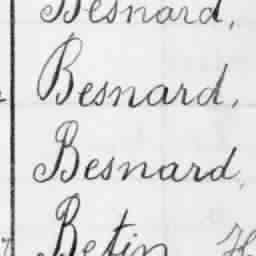 Besnard,
Besnard,
Besnard,
Betin